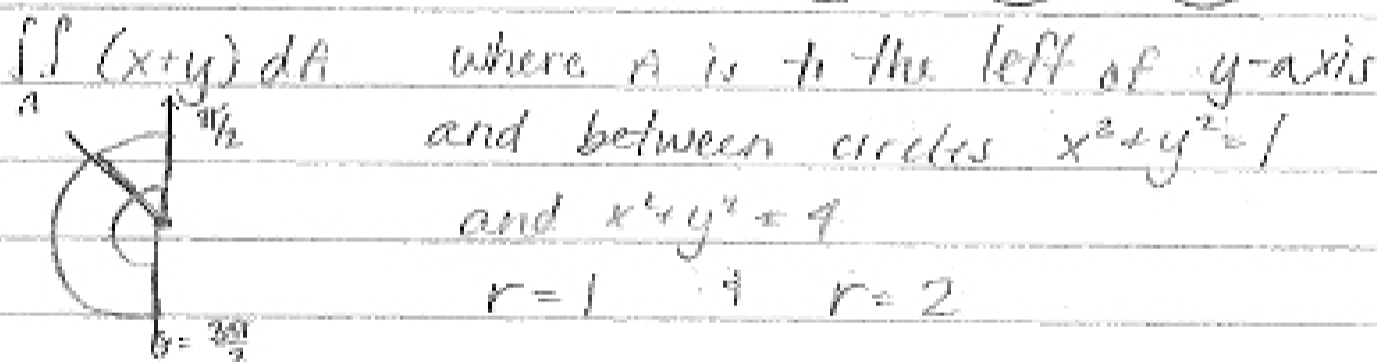 ∬ (x+y) dA where A is to the left of y-axis
A
π/2
and between circles x²+y²=1
and x²+y²=4
r=1 & r=2
θ= 3π/2